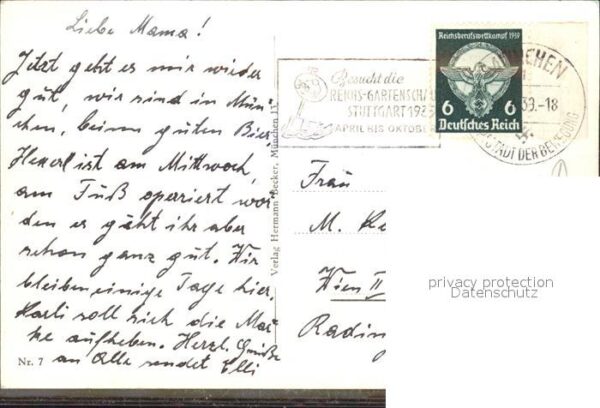 Liebe Mama!
Jetzt geht es mir wieder
gut, wir sind in Mün-
chen, beim guten Bier
Hexerl ist am Mittwoch,
am Fuß operriert wor-
den es geht ihr aber
schon ganz gut. Wir
bleiben einige Tage hier,
Karli soll sich die Mar-
ke aufheben. Herzl. Grüße
an Alle sendet Elli
Nr. 7
Verlag Hermann Becker, München 11
Besucht die
REICHS-GARTENSCHAU
STUTTGART 1939
APRIL BIS OKTOBER
Reichsberufswettkampf 1939
6 6
Deutsches Reich
MÜNCHEN
39.-18
STADT DER BEWEGUNG
Frau
M.
Wien II
Radin
privacy protection
Datenschutz